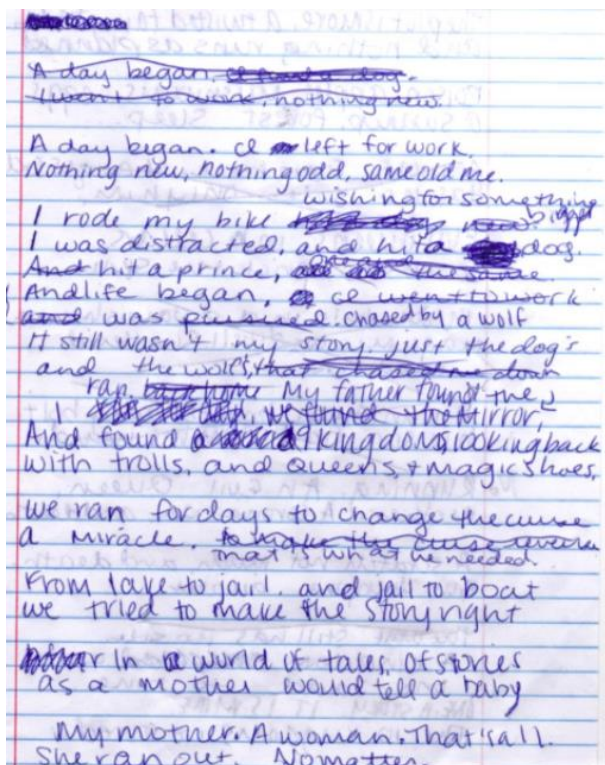 A day began.
I went to work, nothing new.
A day began. I left for work.
Nothing new, nothing odd, same old me.
wishing for something
I rode my bike bigger
I was distracted, and hit a dog.
And hit a prince,
And life began, I went to work
and was chased by a wolf
It still wasn't my story. just the dog's
and the wolf's, that chased me down
ran My father found me,
I we found the mirror,
And found 9 kingdoms looking back
with trolls, and queens + magic shoes.
we ran for days to change the curse
a miracle. to make the curse reverse
That is what we needed.
From lake to jail, and jail to boat
we tried to make the story right
In a world of tales, of stories
as a mother would tell a baby
My mother. A woman. That's all.
She ran out. No matter.